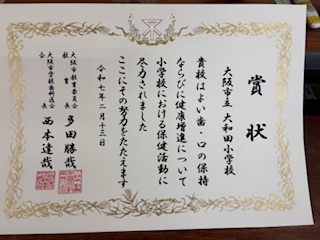 賞状
大阪市立 大和田小学校
貴校はよい歯・口の保持
ならびに健康増進について
小学校における保健活動に
尽力されました
ここにその努力をたたえます
令和七年二月十三日
大阪市教育委員会
教育長 多田勝哉
大阪市学校歯科医会
会長 西本達哉